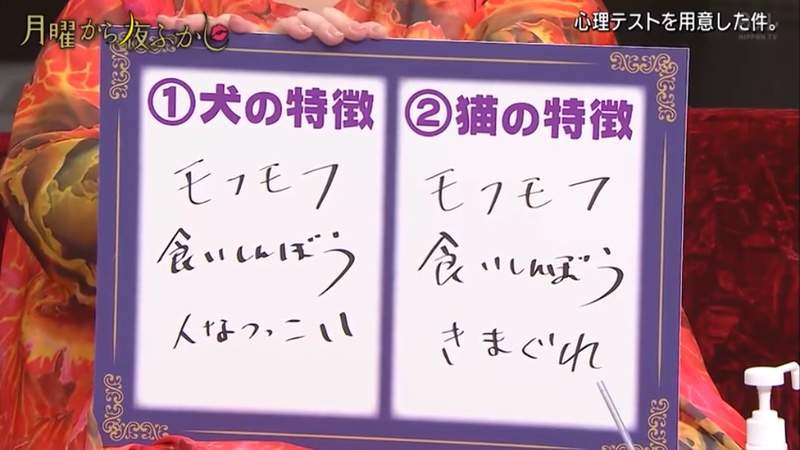 月曜から夜ふかし
心理テストを用意した件。
NIPPON TV
①犬の特徴
モフモフ
食いしんぼう
人なつっこい
②猫の特徴
モフモフ
食いしんぼう
きまぐれ